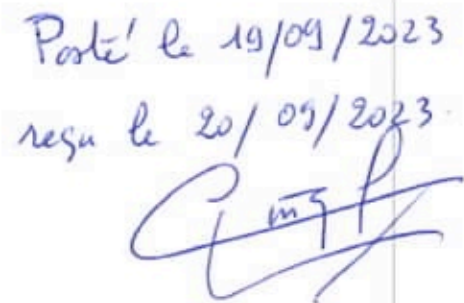 Posté le 19/09/2023
reçu le 20/09/2023